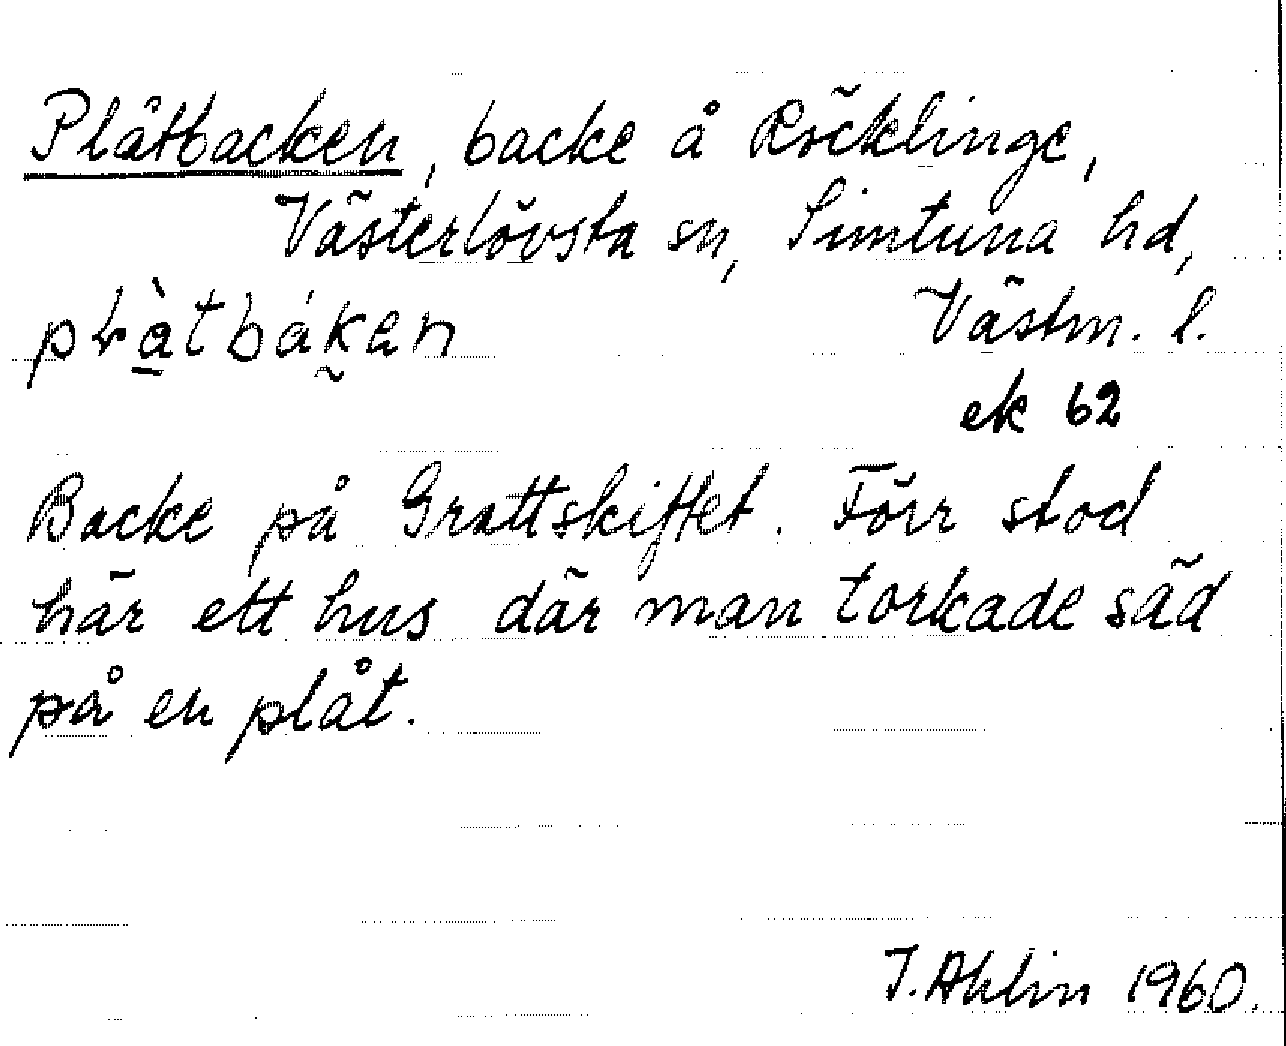 Plåtbacken, backe å Röcklinge,
Västerlövsta sn, Simtuna hd,
Västm. l.
ek 62
Backe på Grattskiftet. Förr stod
här ett hus där man torkade säd
på en plåt.
J. Ahlin 1960.